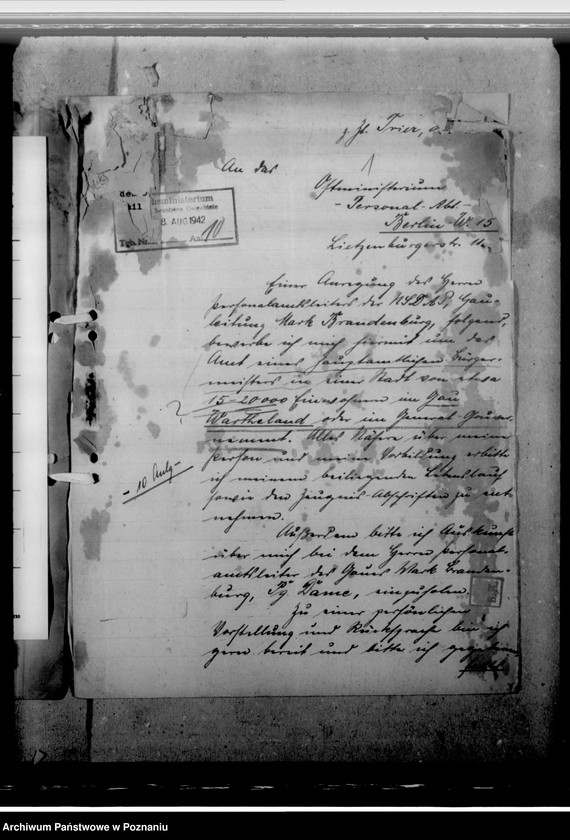 z. Zt. Trier,
An das
Ostministerium
- Personal-Abt. -
Berlin W. 15
Lietzenburgerstr. 11.
ministerium
8. AUG 1942
Tgb. Nr. Anl. 10
Einer Anregung des Herrn
Personalamtsleiters der NSDAP, Gau-
leitung Mark Brandenburg, folgend,
bewerbe ich mich hiermit um das
Amt eines hauptamtlichen Bürger-
meisters in einer Stadt von etwa
15-20000 Einwohnern im Gau
Wartheland oder im General-Gouver-
nement. Alles Nähere über meine
Person und meine Vorbildung erbitte
ich meinem beiliegenden Lebenslauf
sowie den Zeugnis-Abschriften zu ent-
nehmen.
- 10 Anlg -
Außerdem bitte ich Auskunft
über mich bei dem Herrn Personal-
amtsleiter des Gaues Mark Branden-
burg, Pg. Dame, einzuholen.
Zu einer persönlichen
Vorstellung und Rücksprache bin ich
gern bereit und bitte ich
Archiwum Państwowe w Poznaniu